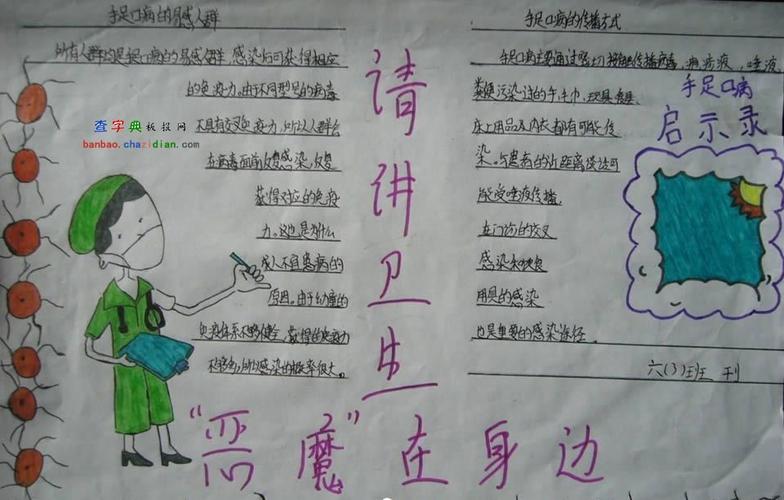 手足口病的易感人群
所有人群均是手足口病的易感人群 感染后可获得相应
的免疫力。由于不同型号的病毒
不具有交叉免疫力,所以人群会
在病毒面前反复感染,反复
获得对应的免疫
力。这也是为什么
成人不宜患病的
原因。由于幼童的
免疫体系不够健全,获得的免疫力
不够多,所以感染的概率很大。
查字典板报网
banbao.chazidian.com
请讲卫生
手足口病的传播方式
手足口病主要通过密切接触传播病毒,唾液
粪便污染过的手、毛巾、玩具、食具、
床上用品及内衣都有可能传
染。与患病的近距离谈话可
能受唾液传播,
在门诊的交叉
感染
用具的感染
也是重要的感染途径。
六(3)班 刊
手足口病
启示录
“恶魔”在身边